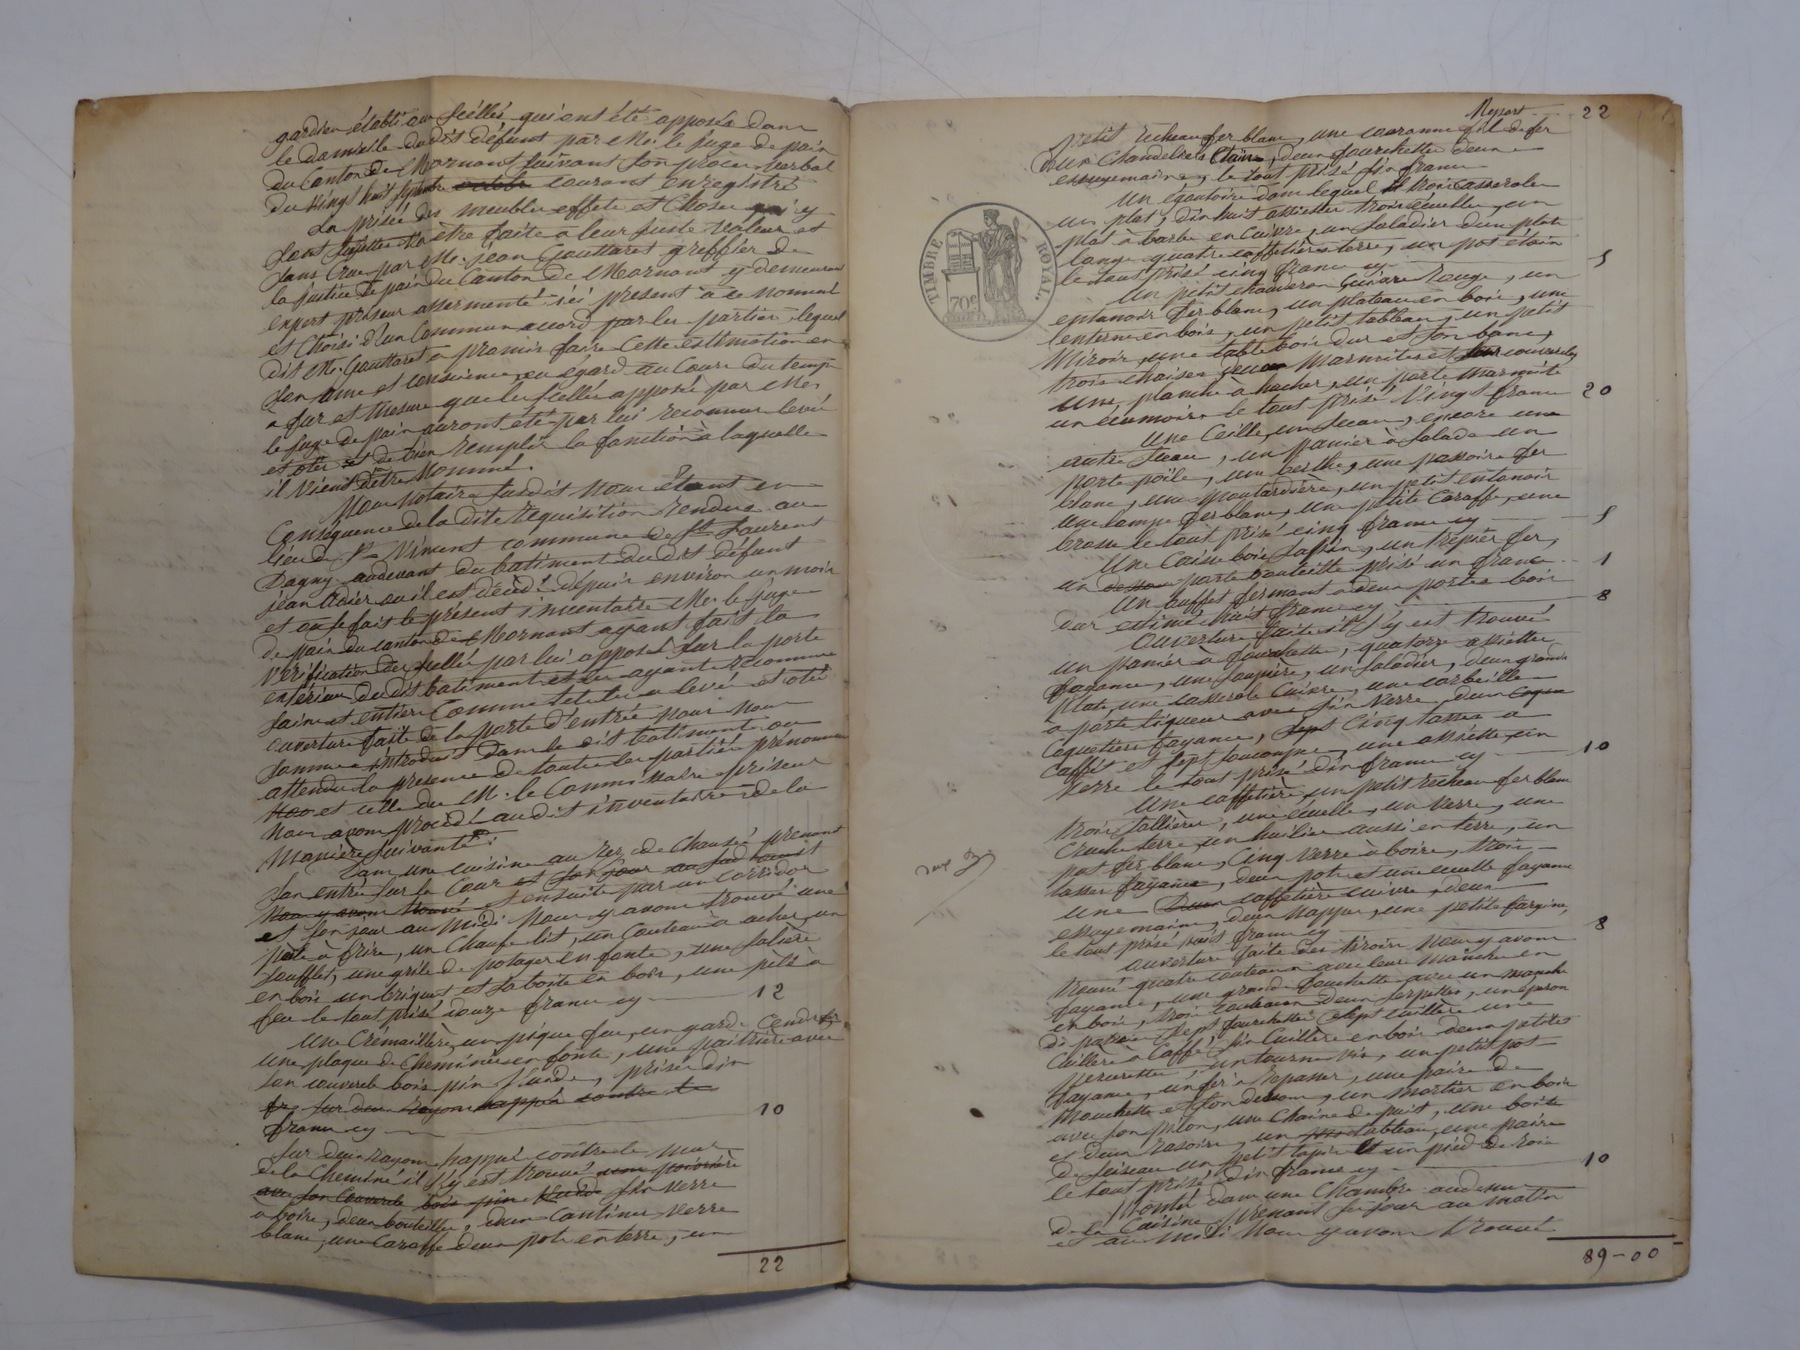 gardien établi aux Scéllés qui ont été apposés dans
le domicile dudit défunt par Me. le juge de paix
du Canton de Mornant suivant son procès verbal
du vingt huit courant enregistré
La prisée des meubles effets et choses qui y
sont être faite a leur juste valeur et
sans Crue par Me. jean Gouttaret greffier de
la justice de paix du Canton de Mornant y demeurant
expert priseur assermenté ici présent à ce nommé
et Choisi d'un Commun accord par les parties, lequel
dit Me. Gouttaret a promis faire Cette estimation en
son âme et conscience eu egard au Cours du temps
à fur et mesure que les scellés apposés par Me.
le juge de paix auront été par lui reconnus levés
et otés et de bien remplir la fonction à laquelle
il vient d'être Nommé.
Nous notaire susdit nous étant en
Conséquence de la dite requisition rendue au
lieu de St Vincent commune de St. Laurent
Dagny audevant du batiment dudit défunt
jean où il est décédé depuis environ un mois
et où se fait le présent inventaire Me. le juge
de paix du canton de Mornant ayant fait la
vérification des scellés par lui apposés sur la porte
extérieur du dit batiment et les ayant reconnus
sains et entiers Comme tels les a levés et otés
ouverture faite de la porte d'entrée nous nous
sommes introduit dans le dit batiment ou
attendu la présence de toutes les parties prénommées
et celle du Me. le Commissaire priseur
nous avons procédé au dit inventaire de la
Manière Suivante:
Dans une cuisine au rez de Chaussée prenant
son entrée sur la Cour et son jour
ensuite par un corridor
et son jour au midi Nous y avons trouvé une
poële à frire, un Chaufe lit, un Couteau à acher, un
soufflet, une grile de potager en fonte, une salière
en bois un briquet et sa boite en bois, une pèle a
feu le tout prisé douze francs cy 12
Une Crémaillère, un pique feu, un garde Cendres
une plaque de Cheminée en fonte, une paitrière avec
son couvercle bois pin blande, prisés dix
frs. sur deux Rayons happés contre le
francs cy 10
Sur deux rayons happés contre le mur
de la Cheminée il s'y est trouvé
avec son Couvercle bois pin six verres
à boire, deux bouteilles, deux Cantines verre
blanc, une Caraffe deux pots en terre, un
22
Report 22
petit Recheau fer blanc, une couronne fil de fer
deux Chandeliers Etain, deux fourchettes deux
essuyemains, le tout prisé six francs
Un égoutoire dans lequel trois Casseroles
un plat, dix huit assiettes trois écuelles, un
plat à barbe en Cuivre, un Saladier deux plats
longs quatre caffetières terre, un pot étain
le tout prisé cinq francs cy 5
Un petit chauderon Cuivre Rouge, un
entonnoir fer blanc, un plateau en bois, une
lenterne en bois, un petit tableau, un petit
Miroir, une table bois dur et son banc,
trois chaises deux Marmites et couvercles
une planche à hacher, un porte Marmite
un écumoire le tout prisé vingt francs 20
Une Ceille, un Seau, encore une
autre Seau, un panier à Salade un
porte poële, un berthe, une passoire fer
blanc, une Moutardière, un petit entonoir
une lampe fer blanc, une petite Caraffe, une
brosse le tout prisé cinq francs cy 5
Une Caisse bois Saffin, un trépier fer,
un porte bouteille prisé un franc 1
Un buffet fermant à deux portes bois
dur estimé huit francs cy 8
Ouverture faite il s'y est trouvé
un panier à fourchettes, quatorze assiettes
fayance, une Soupière, un saladier, deux grands
plats, une casserole Cuivre, une corbeille
a porte liqueur avec six verres deux
Coquetiers fayance, Cinq tasses a
Caffé et sept soucoupes, une assiette, un
verre le tout prisé dix francs cy 10
Une caffetière, un petit recheau fer blanc
trois Sallières, une écuelle, un verre, une
Cruche terre, un huilier aussi en terre, un
pot fer blanc, Cinq verres à boire, trois
tasses fayance, deux pots et une ecuelle fayance
une caffetière cuivre, deux
essuyemains, deux Nappes, une petite
le tout prisé huit francs cy 8
Ouverture faite des tiroirs Nous y avons
trouvé quatre couteaux avec leurs Manches en
fayance, une grande fourchette avec un manche
en bois, trois couteaux deux serpettes, un éperon
sept fourchettes sept cuillère une
Cuillère à Caffé, six Cuillère en bois deux petites
un tourne vis, un petit pot
fayance, un fer à Repasser, une paire de
Mouchettes et son dessous, un mortier en bois
avec son pilon, une Chaine de puit, une boite
et deux rasoirs, un tableau, une paire
de Siseaux un petit tapis et un pied de Roi
le tout prisé dix francs cy 10
Monté dans une Chambre audessus
de la Cuisine prenant son jour au matin
et au midi Nous y avons trouvé
89-00
TIMBRE ROYAL.
70c